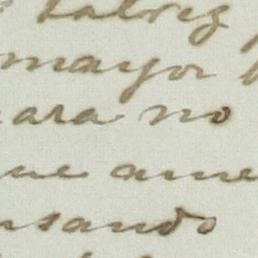 talvez
mayor
ara no
ue ame
nsando